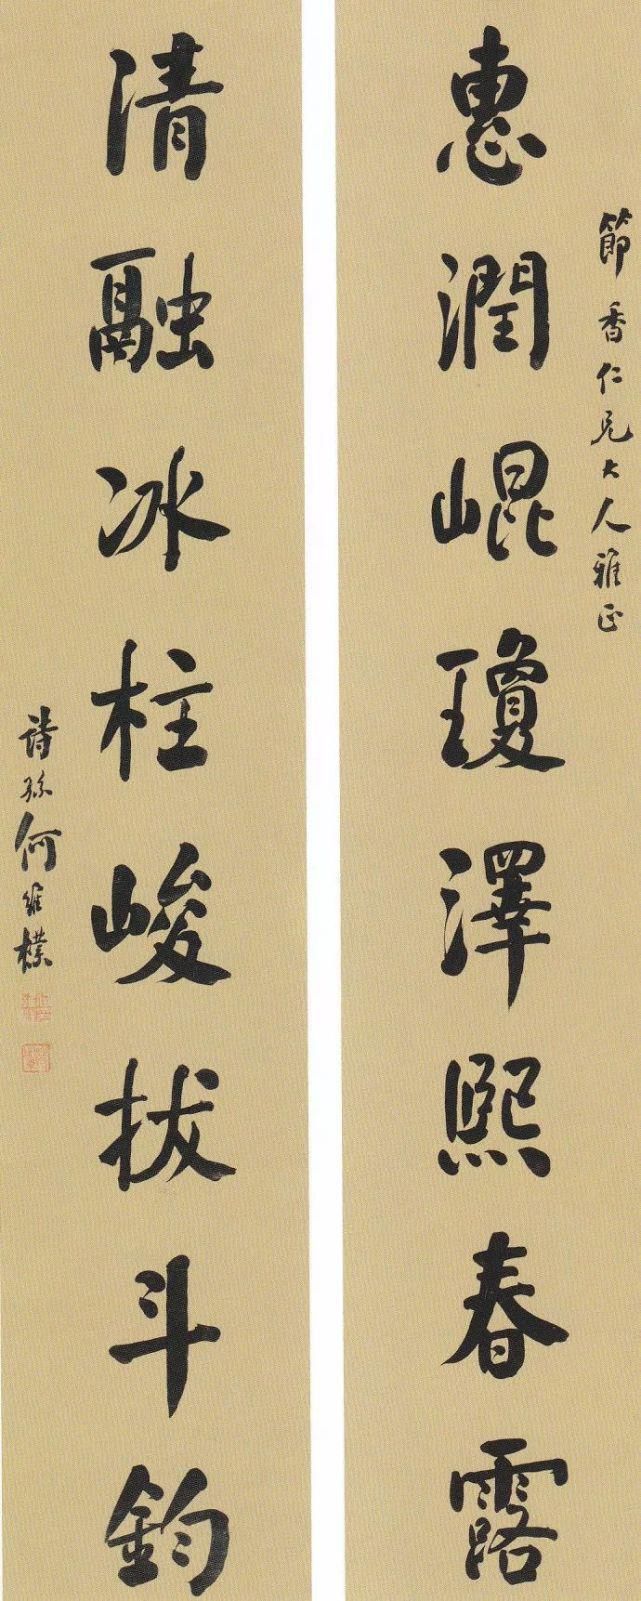 節香仁兄大人雅正
惠潤崐瓊澤熙春露
清融冰柱峻拔斗鈞
詩孫何維樸